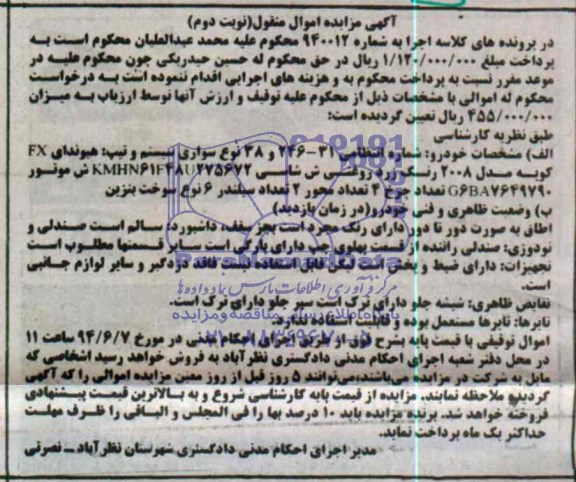 آگهی مزایده اموال منقول(نوبت دوم)
در پرونده های کلاسه اجرا به شماره ۹۴۰۰۱۲ محکوم علیه محمد عبدالعلیان محکوم است به
پرداخت مبلغ ۱/۱۲۰/۰۰۰/۰۰۰ ریال در حق محکوم له حسین حیدربکی چون محکوم علیه در
موعد مقرر نسبت به پرداخت محکوم به و هزینه های اجرایی اقدام ننموده است به درخواست
محکوم له اموالی با مشخصات ذیل از محکوم علیه توقیف و ارزش آنها توسط ارزیاب به میزان
۴۵۵/۰۰۰/۰۰۰ ریال تعیین گردیده است:
طبق نظریه کارشناسی
الف) مشخصات خودرو: شماره انتظامی ۳۱-۲۴۶ و ۳۸ نوع سواری سیستم و تیپ: هیوندای FX
کوپه مدل ۲۰۰۸ رنگ زرد روغنی ش شاسی ش موتور
G6BA7649790 تعداد چرخ ۴ تعداد محور ۲ تعداد سیلندر ۶ نوع سوخت بنزین
ب) وضعیت ظاهری و فنی خودرو(در زمان بازدید)
اطاق به صورت دور تا دور دارای رنگ مجرد است بجز سقف، داشبورد: سالم است صندلی و
تودوزی: صندلی راننده از قسمت پهلوی چپ دارای پارگی است سایر قسمتها مطلوب است
تجهیزات: دارای ضبط و پخش است لیکن قابل استفاده نیست فاقد دزدگیر و سایر لوازم جانبی
است.
نقایص ظاهری: شیشه جلو دارای ترک است سپر جلو دارای ترک است.
تایرها: تایرها مستعمل بوده و قابلیت استفاده ندارد.
اموال توقیفی با قیمت پایه بشرح فوق از طریق اجرای احکام مدنی در مورخ ۹۴/۶/۷ ساعت ۱۱
در محل دفتر شعبه اجرای احکام مدنی دادگستری نظرآباد به فروش خواهد رسید اشخاصی که
مایل به شرکت در مزایده می‌باشند،می‌توانند ۵ روز قبل از روز معین مزایده اموالی را که آگهی
گردیده ملاحظه نمایند. مزایده از قیمت پایه کارشناسی شروع و به بالاترین قیمت پیشنهادی
فروخته خواهد شد. برنده مزایده باید ۱۰ درصد بها را فی المجلس و الباقی را ظرف مهلت
حداکثر یک ماه پرداخت نماید.
مدیر اجرای احکام مدنی دادگستری شهرستان نظرآباد ــ نصرتی